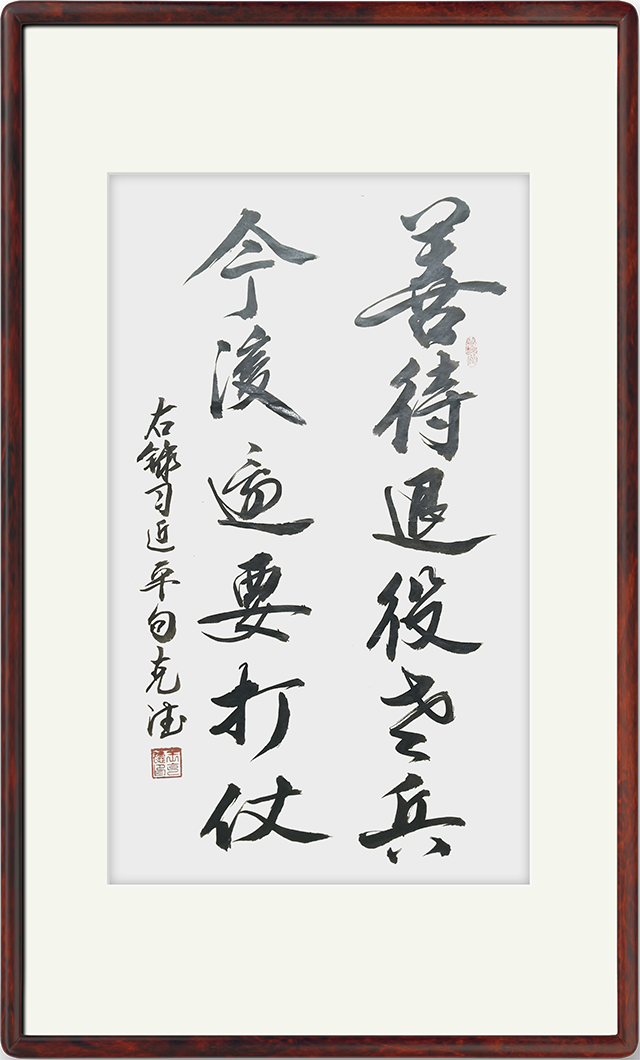 善待退役老兵
今後還要打仗
右錄习近平句克法